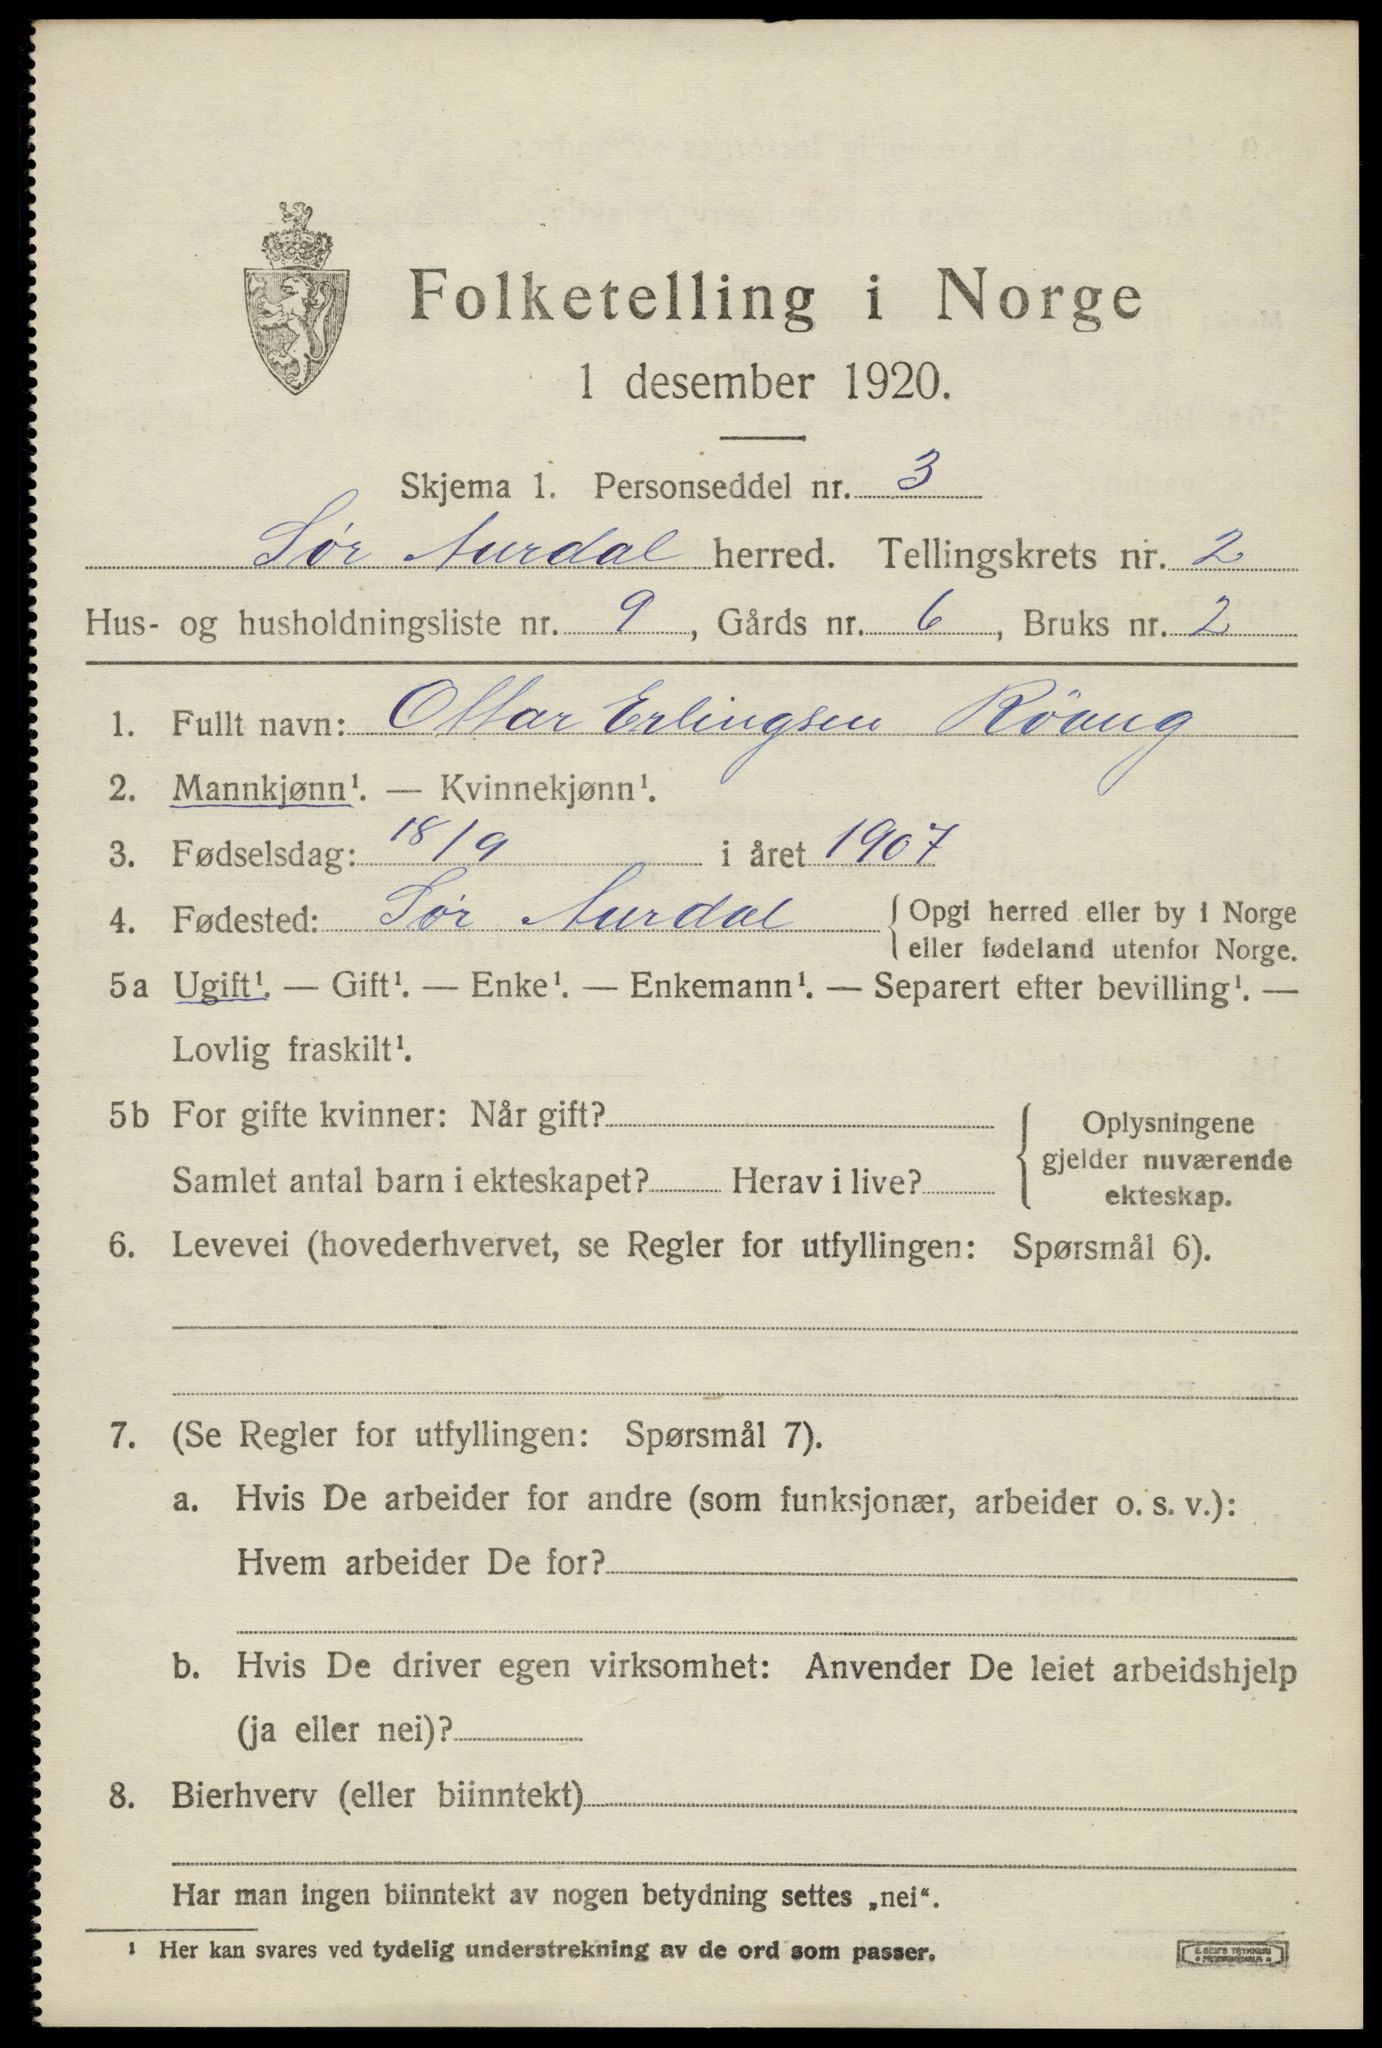 Folketelling i Norge
1 desember 1920.
Skjema 1. Personseddel nr. 3
Sør Aurdal herred. Tellingskrets nr. 2
Hus- og husholdningsliste nr. 9, Gårds nr. 6, Bruks nr. 2
1. Fullt navn: Ottar Erlingsen
2. Mannkjønn¹. — Kvinnekjønn¹.
3. Fødselsdag: 18/9 i året 1907
4. Fødested: Sør Aurdal { Opgi herred eller by i Norge
eller fødeland utenfor Norge.
5a Ugift¹. — Gift¹. — Enke¹. — Enkemann¹. — Separert efter bevilling¹. —
Lovlig fraskilt¹.
5b For gifte kvinner: Når gift?
Samlet antal barn i ekteskapet? Herav i live?
{ Oplysningene
gjelder nuværende
ekteskap.
6. Levevei (hovederhvervet, se Regler for utfyllingen: Spørsmål 6).
7. (Se Regler for utfyllingen: Spørsmål 7).
a. Hvis De arbeider for andre (som funksjonær, arbeider o. s. v.):
Hvem arbeider De for?
b. Hvis De driver egen virksomhet: Anvender De leiet arbeidshjelp
(ja eller nei)?
8. Bierhverv (eller biinntekt)
Har man ingen biinntekt av nogen betydning settes „nei“.
¹ Her kan svares ved tydelig understrekning av de ord som passer.